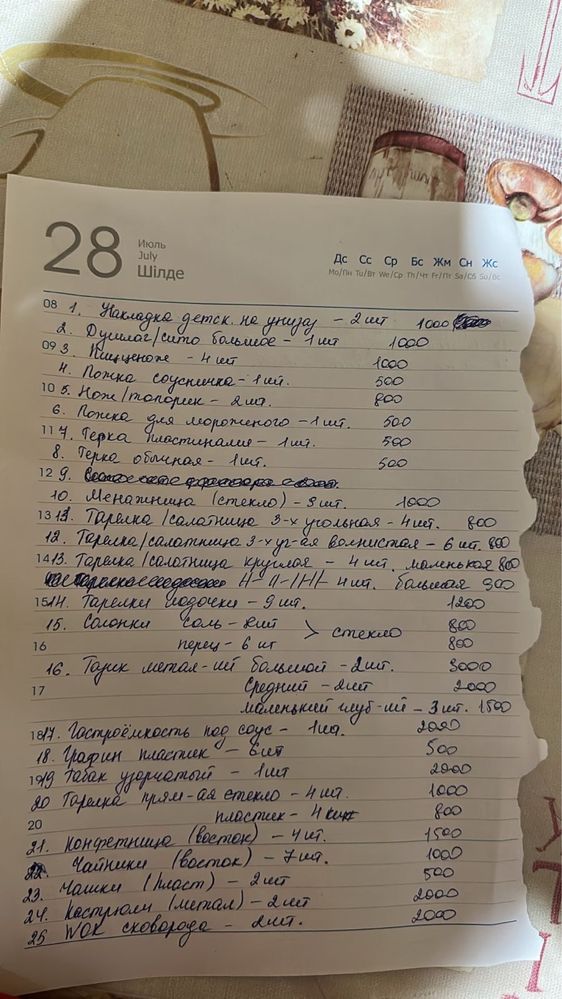 28
Июль
July
Шілде
Дс Сс Ср Бс Жм Сн Жс
Mo/Пн Tu/Вт We/Ср Th/Чт Fr/Пт Sa/Сб Su/Вс
08 1. Накладка детск. на унизаз – 2 шт 1000
2. Душлаг/сито большое – 1 шт 1000
09 3. – 4 шт 1000
4. Ложка соусничка – 1 шт. 500
10 5. Нож/топорик – 2 шт. 800
6. Ложка для мороженого – 1 шт. 500
11 7. Терка пластинами – 1 шт. 500
8. Терка обычная – 1 шт. 500
12 9.
10. Менажница (стекло) – 3 шт. 1000
13 11. Тарелка/салатница 3-х угольная – 4 шт. 800
12. Тарелка/салатница 3-х уг-ая волнистая – 6 шт. 800
14 13. Тарелка/салотница круглая – 4 шт. маленькая 800
4 шт. большая 900
15 14. Тарелки лодочки – 9 шт. 1200
15. Солонки соль – 8 шт > стекло 800
16 перец – 6 шт 800
16. Тазик метал-ий большой – 2 шт. 3000
17 Средний – 2 шт 2000
маленький глуб-ий – 3 шт. 1500
18 17. Гастроёмкость под соус – 1 шт. 2000
18. Графин пластик – 6 шт 500
19 19 Табак узорчатый – 1 шт 2000
20 Тарелка прям-ая стекло – 4 шт. 1000
20 пластик – 4 шт 800
21. Конфетница (восток) – 4 шт. 1500
22. Чайники (восток) – 7 шт. 1000
23. Чашки (пласт) – 2 шт 500
24. Кастрюли (метал) – 2 шт 2000
25 WOK сковорода – 2 шт. 2000